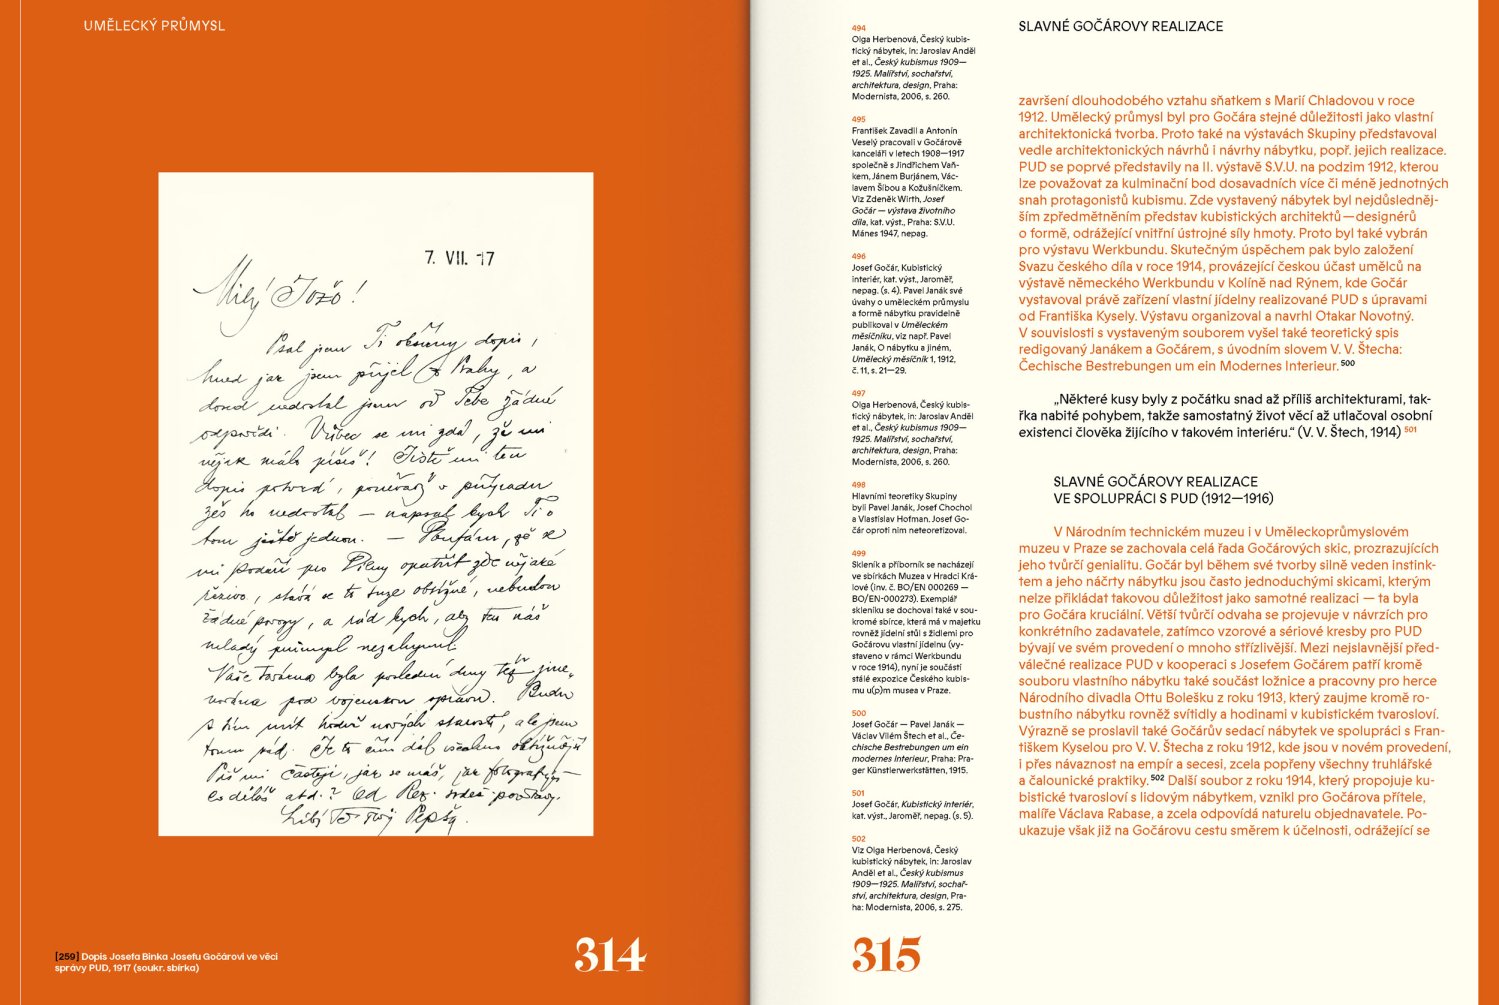 UMĚLECKÝ PRŮMYSL
7. VII. 17
Milý Jožo!
Psal jsem Ti obšírný dopis,
hned jak jsem přijel z Prahy, a
dosud nedostal jsem od Tebe žádné
odpovědi. Vůbec se mi zdá, že mi
nějak málo píšeš! Jistě mi ten
dopis potvrď, poněvadž v případu
žes ho nedostal — napsal bych Ti o
tom ještě jednou. — Doufám, že se
mi podaří pro Plzeny opatřit zde nějaké
řezivo, stává se to sice obtížné, nebudou
žádné povozy, a rád bych, aby ten náš
mladý průmysl nezahynul.
Vaše továrna byla poslední dny též jme-
nována pod vojenskou správu. Budu
s tím mít hodně nových starostí, ale jsem
tomu rád. Je to čím dál všechno obtížnější
Piš mi častěji, jak se máš, jak
co děláš atd.? Od Rez. srdeč. pozdravy.
Líbí Tě Tvůj Pepša.
[259] Dopis Josefa Binka Josefu Gočárovi ve věci
správy PUD, 1917 (soukr. sbírka)
314
494
Olga Herbenová, Český kubis-
tický nábytek, in: Jaroslav Anděl
et al., Český kubismus 1909—
1925. Malířství, sochařství,
architektura, design, Praha:
Modernista, 2006, s. 260.
495
František Zavadil a Antonín
Veselý pracovali v Gočárově
kanceláři v letech 1908—1917
společně s Jindřichem Vaň-
kem, Jánem Burjánem, Vác-
lavem Šibou a Kožušníčkem.
Viz Zdeněk Wirth, Josef
Gočár — výstava životního
díla, kat. výst., Praha: S.V.U.
Mánes 1947, nepag.
496
Josef Gočár, Kubistický
interiér, kat. výst., Jaroměř,
nepag. (s. 4). Pavel Janák své
úvahy o uměleckém průmyslu
a formě nábytku pravidelně
publikoval v Uměleckém
měsíčníku, viz např. Pavel
Janák, O nábytku a jiném,
Umělecký měsíčník 1, 1912,
č. 11, s. 21—29.
497
Olga Herbenová, Český kubis-
tický nábytek, in: Jaroslav Anděl
et al., Český kubismus 1909—
1925. Malířství, sochařství,
architektura, design, Praha:
Modernista, 2006, s. 260.
498
Hlavními teoretiky Skupiny
byli Pavel Janák, Josef Chochol
a Vlastislav Hofman. Josef Go-
čár oproti nim neteoretizoval.
499
Skleník a příborník se nacházejí
ve sbírkách Muzea v Hradci Krá-
lové (inv. č. BO/EN 000269 —
BO/EN-000273). Exemplář
skleníku se dochoval také v sou-
kromé sbírce, která má v majetku
rovněž jídelní stůl s židlemi pro
Gočárovu vlastní jídelnu (vy-
staveno v rámci Werkbundu
v roce 1914), nyní je součástí
stálé expozice Českého kubis-
mu u(p)m musea v Praze.
500
Josef Gočár — Pavel Janák —
Václav Vilém Štech et al., Če-
chische Bestrebungen um ein
modernes Interieur, Praha: Pra-
ger Künstlerwerkstätten, 1915.
501
Josef Gočár, Kubistický interiér,
kat. výst., Jaroměř, nepag. (s. 5).
502
Viz Olga Herbenová, Český
kubistický nábytek, in: Jaroslav
Anděl et al., Český kubismus
1909—1925. Malířství, sochař-
ství, architektura, design, Pra-
ha: Modernista, 2006, s. 275.
315
SLAVNÉ GOČÁROVY REALIZACE
završení dlouhodobého vztahu sňatkem s Marií Chladovou v roce
1912. Umělecký průmysl byl pro Gočára stejné důležitosti jako vlastní
architektonická tvorba. Proto také na výstavách Skupiny představoval
vedle architektonických návrhů i návrhy nábytku, popř. jejich realizace.
PUD se poprvé představily na II. výstavě S.V.U. na podzim 1912, kterou
lze považovat za kulminační bod dosavadních více či méně jednotných
snah protagonistů kubismu. Zde vystavený nábytek byl nejdůsledněj-
ším zpředmětněním představ kubistických architektů—designérů
o formě, odrážející vnitřní ústrojné síly hmoty. Proto byl také vybrán
pro výstavu Werkbundu. Skutečným úspěchem pak bylo založení
Svazu českého díla v roce 1914, provázející českou účast umělců na
výstavě německého Werkbundu v Kolíně nad Rýnem, kde Gočár
vystavoval právě zařízení vlastní jídelny realizované PUD s úpravami
od Františka Kysely. Výstavu organizoval a navrhl Otakar Novotný.
V souvislosti s vystaveným souborem vyšel také teoretický spis
redigovaný Janákem a Gočárem, s úvodním slovem V. V. Štecha:
Čechische Bestrebungen um ein Modernes Interieur. 500
„Některé kusy byly z počátku snad až příliš architekturami, tak-
řka nabité pohybem, takže samostatný život věcí až utlačoval osobní
existenci člověka žijícího v takovém interiéru.“ (V. V. Štech, 1914) 501
SLAVNÉ GOČÁROVY REALIZACE
VE SPOLUPRÁCI S PUD (1912—1916)
V Národním technickém muzeu i v Uměleckoprůmyslovém
muzeu v Praze se zachovala celá řada Gočárových skic, prozrazujících
jeho tvůrčí genialitu. Gočár byl během své tvorby silně veden instink-
tem a jeho náčrty nábytku jsou často jednoduchými skicami, kterým
nelze přikládat takovou důležitost jako samotné realizaci — ta byla
pro Gočára kruciální. Větší tvůrčí odvaha se projevuje v návrzích pro
konkrétního zadavatele, zatímco vzorové a sériové kresby pro PUD
bývají ve svém provedení o mnoho střízlivější. Mezi nejslavnější před-
válečné realizace PUD v kooperaci s Josefem Gočárem patří kromě
souboru vlastního nábytku také součást ložnice a pracovny pro herce
Národního divadla Ottu Bolešku z roku 1913, který zaujme kromě ro-
bustního nábytku rovněž svítidly a hodinami v kubistickém tvarosloví.
Výrazně se proslavil také Gočárův sedací nábytek ve spolupráci s Fran-
tiškem Kyselou pro V. V. Štecha z roku 1912, kde jsou v novém provedení,
i přes návaznost na empír a secesi, zcela popřeny všechny truhlářské
a čalounické praktiky. 502 Další soubor z roku 1914, který propojuje ku-
bistické tvarosloví s lidovým nábytkem, vznikl pro Gočárova přítele,
malíře Václava Rabase, a zcela odpovídá naturelu objednavatele. Po-
ukazuje však již na Gočárovu cestu směrem k účelnosti, odrážející se